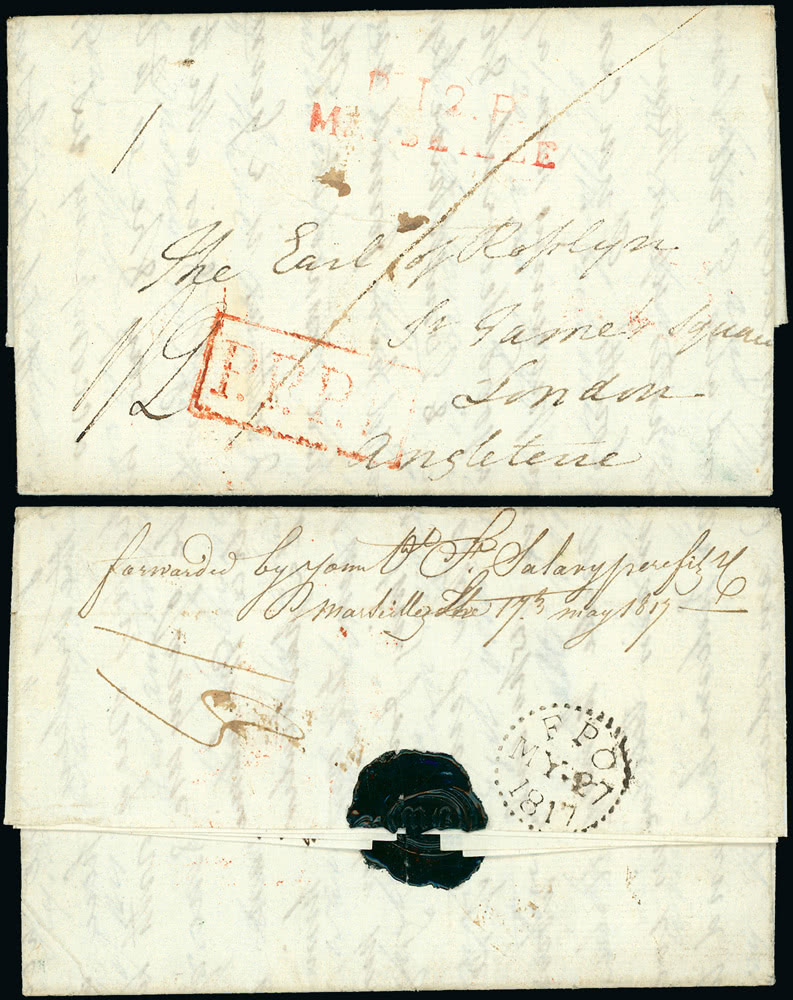 P.12.P.
MARSEILLE
1
The Earl of Roſslyn
St James's Square
London
Angleterre
1/2
P.P.P.P.
forwarded by your
Marseilles the 17th may 1817
F P O
MY·27
1817